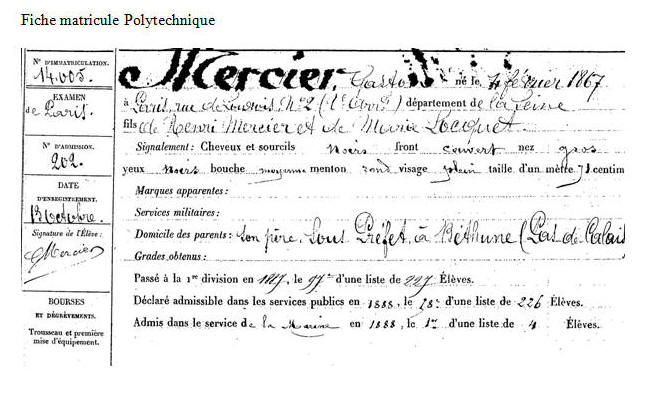 Fiche matricule Polytechnique
N° D'IMMATRICULATION.
14.005.
EXAMEN
de Paris.
N° D'ADMISSION.
202.
DATE
D'ENREGISTREMENT.
13 octobre.
Signature de l'Élève:
GMercier
BOURSES
ET DÉGRÈVEMENTS.
Trousseau et première
mise d'équipement.
Mercier, Gaston né le 4 février 1867
à Paris, rue de N° 2 département de la Seine
fils de Henri Mercier et de Marie Locquet.
Signalement: Cheveux et sourcils noirs front couvert nez gros
yeux noirs bouche moyenne menton rond visage plein taille d'un mètre 71 centim
Marques apparentes:
Services militaires:
Domicile des parents: Son père, Sous Préfet, à Béthune (Pas de Calais
Grades obtenus:
Passé à la 1re division en 1887, le 97e d'une liste de 227 Élèves.
Déclaré admissible dans les services publics en 1888, le d'une liste de 226 Élèves.
Admis dans le service de la Marine en 1888, le 1er d'une liste de 4 Élèves.